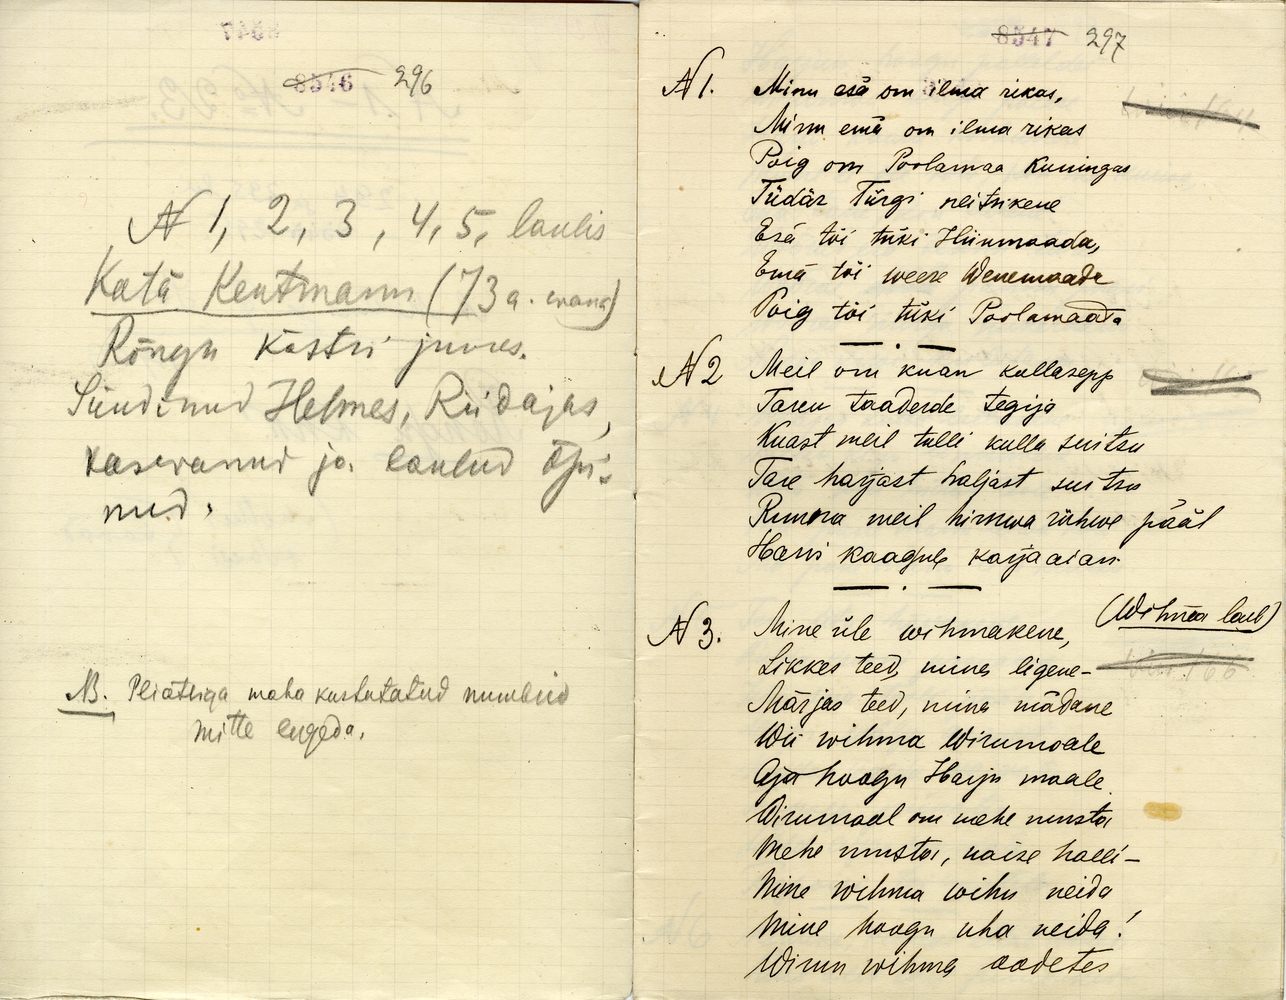 8546 296
N 1, 2, 3, 4, 5, laulis
Katä Kentmann (73 a. wana)
Rõngu Kästri juures.
Sündinud Helmes, Riidajas,
kaswanud ja laulud õpi-
nud.
NB. Pliiatsiga maha kustutatud numbrid
mitte lugeda.
8547 297
N 1. Minu esä om ilma rikas,
Minu emä om ilma rikas
Poig om Poolamaa Kuningas
Tüdär Türgi neitsikene
Esä tõi tüki Hiiumaada,
Emä tõi weere Wenemaada
Poig tõi tüki Poolamaada
N 2 Meil om kuan kullasepp
Tareu taaderde tegija
Kuast meil tulli kulla suitsu
Tare harjast haljast suitsu
Ruuna meil hirnwa rühwe pääl
Hani kaagub karjaaian
(Wihma laul)
N 3. Mine üle wihmakene,
Likkes teed, mina ligene-
Märjas teed, mina mädane
Wii wihma Wirumaale
Aja hoogu Harju maale.
Wirumaal om mehe musta
Mehe musta, naise halli-
Mine wihma wihu neida
Mine hoogu uha neida!
Wiruu wihma oodetes